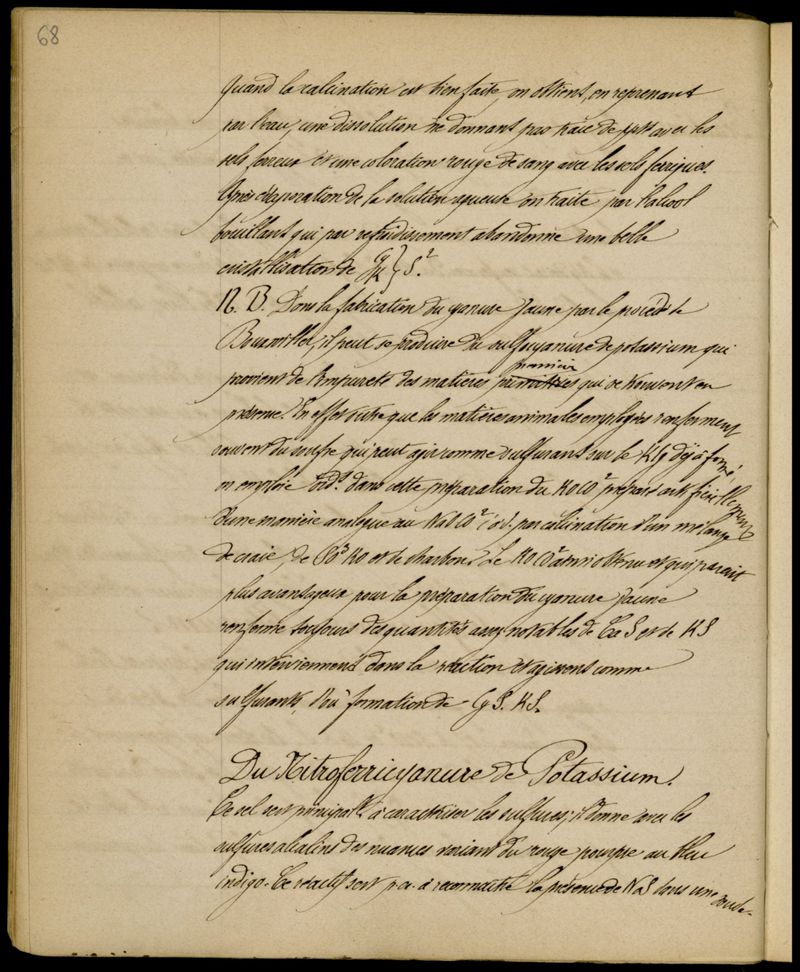 68
Quand la calcination est bien faite, on obtient, en reprenant
par l'eau, une dissolution ne donnant pas trace de ppté avec les
sels ferreux et une coloration rouge de sang avec les sels ferriques.
Après évaporation de la solution aqueuse on traite par l'alcool
bouillant qui par refroidissement abandonne une belle
cristallisation de Cy K } S².
N. B. Dans la fabrication du cyanure jaune par le procédé
il peut se produire du sulfocyanure de potassium qui
premières
provient de l'impureté des matières primitives qui se trouvent en
présence. En effet outre que les matières animales employées renferment
souvent du soufre qui peut agir comme sulfurant sur le KCy déjà formé
on emploie ord.t dans cette préparation du KOCO² préparé artificiellement
d'une manière analogue au NaOCO² c.à.d. par calcination d'un mélange
de craie, de SO³KO et de charbon. Le KOCO² ainsi obtenu et qui parait
plus avantageux pour la préparation du cyanure jaune
renferme toujours des quantités assez notables de CaS et de KS
qui interviennent dans la réaction et agissent comme
sulfurants, d'où formation de CyS.KS.
Du Nitroferricyanure de Potassium.
Ce sel sert principal.t à caractériser les sulfures; il donne avec les
sulfures alcalins des nuances variant du rouge pourpre au bleu
indigo. Ce réactif sert p.ex. à reconnaitre la présence de NaS dans une soude